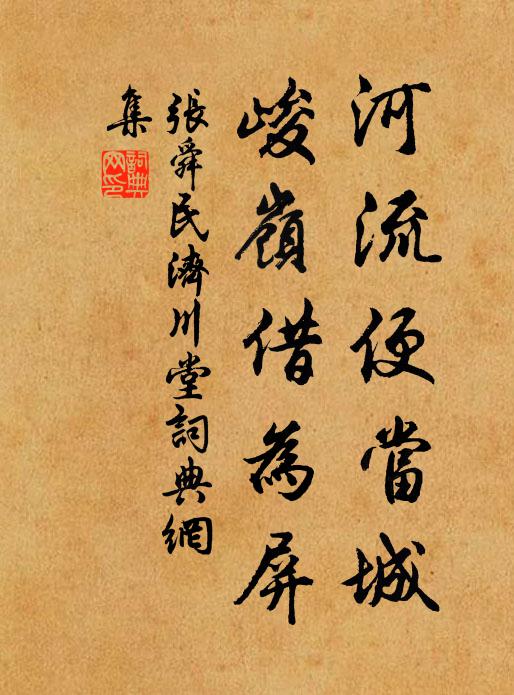 河流便當城
峻嶺借為屏
張舜民濟川堂詞典網
集
詞典
网印